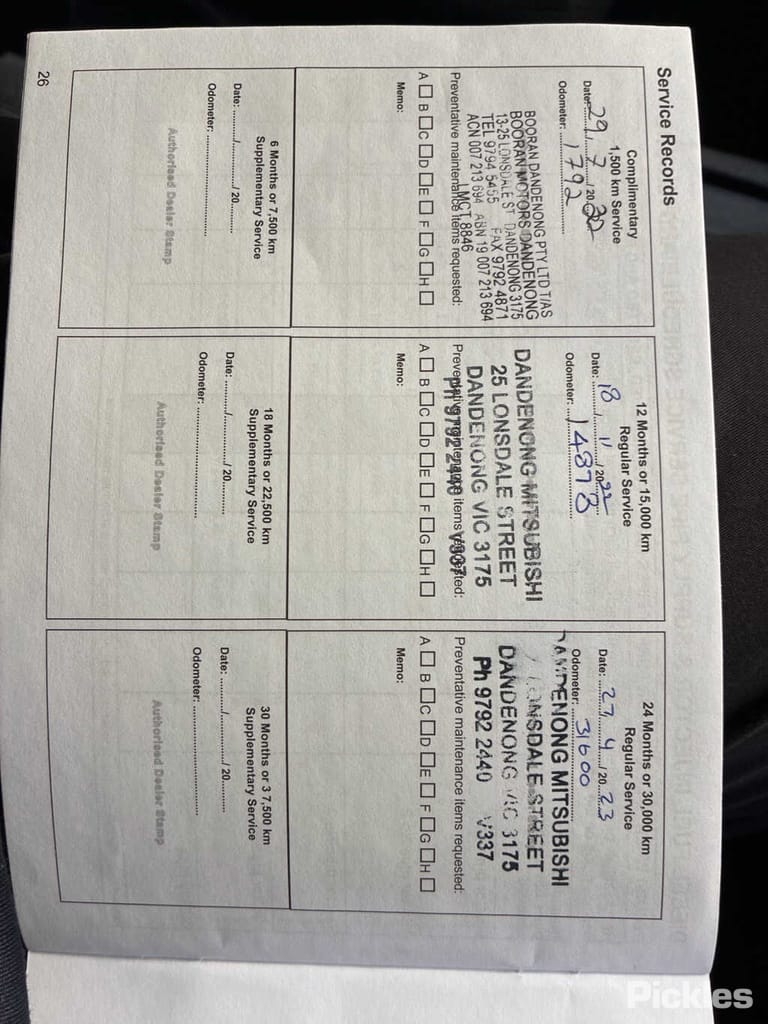 Service Records
Complimentary
1,500 km Service
Date: 29 / 7 / 20 22
Odometer: 1792
BOORAN DANDENONG PTY LTD T/AS
BOORAN MOTORS DANDENONG
13-25 LONSDALE ST DANDENONG 3175
TEL 9794 5455 FAX 9792 4871
ACN 007 213 694 ABN 19 007 213 694
LMCT 8846
Preventative maintenance items requested:
A B C D E F G H
Memo:
12 Months or 15,000 km
Regular Service
Date: 18 / 11 / 20 22
Odometer: 14878
DANDENONG MITSUBISHI
25 LONSDALE STREET
DANDENONG VIC 3175
Ph 9792 2440 V337
Preventative maintenance items requested:
A B C D E F G H
Memo:
24 Months or 30,000 km
Regular Service
Date: 27 / 4 / 20 23
Odometer: 31600
DANDENONG MITSUBISHI
LONSDALE STREET
DANDENONG VIC 3175
Ph 9792 2440 V337
Preventative maintenance items requested:
A B C D E F G H
Memo:
6 Months or 7,500 km
Supplementary Service
Date: ........../........../ 20..........
Odometer: ..............................
Authorised Dealer Stamp
18 Months or 22,500 km
Supplementary Service
Date: ........../........../ 20..........
Odometer: ..............................
Authorised Dealer Stamp
30 Months or 3 7,500 km
Supplementary Service
Date: ........../........../ 20..........
Odometer: ..............................
Authorised Dealer Stamp
26
Pickles